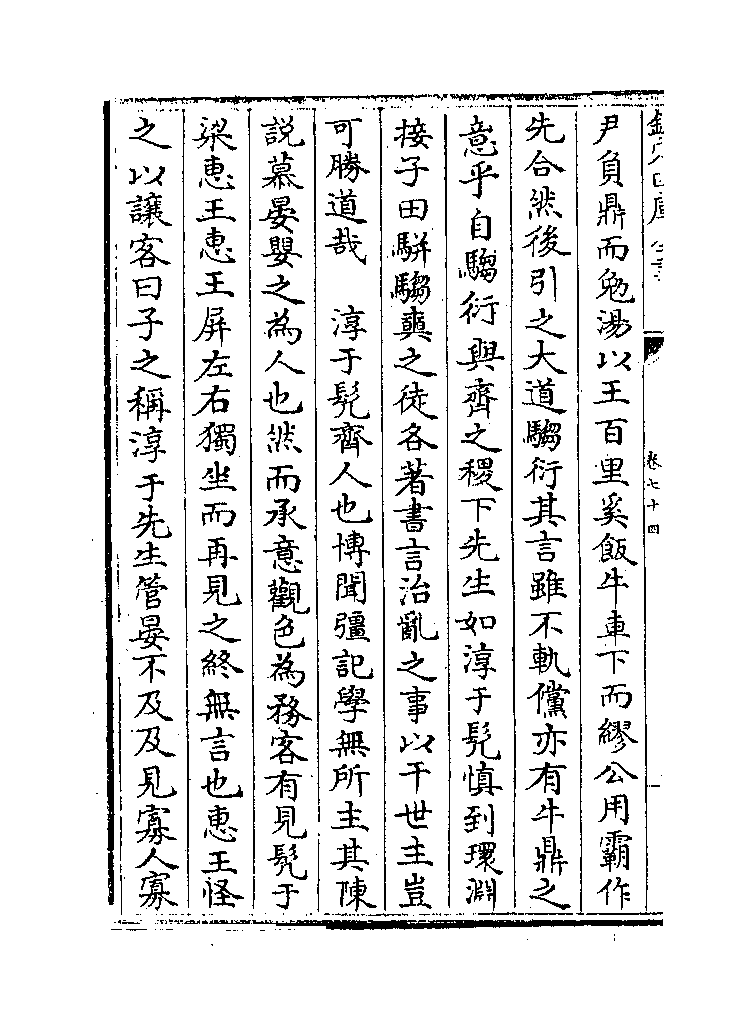 欽定四庫全書
卷七十四
尹負鼎而勉湯以王百里奚飯牛車下而繆公用霸作
先合然後引之大道騶衍其言雖不軌儻亦有牛鼎之
意乎自騶衍與齊之稷下先生如淳于髡慎到環淵
接子田駢騶奭之徒各著書言治亂之事以干世主豈
可勝道哉　淳于髡齊人也博聞彊記學無所主其陳
說慕晏嬰之為人也然而承意觀色為務客有見髡于
梁惠王惠王屏左右獨坐而再見之終無言也惠王怪
之以讓客曰子之稱淳于先生管晏不及及見寡人寡